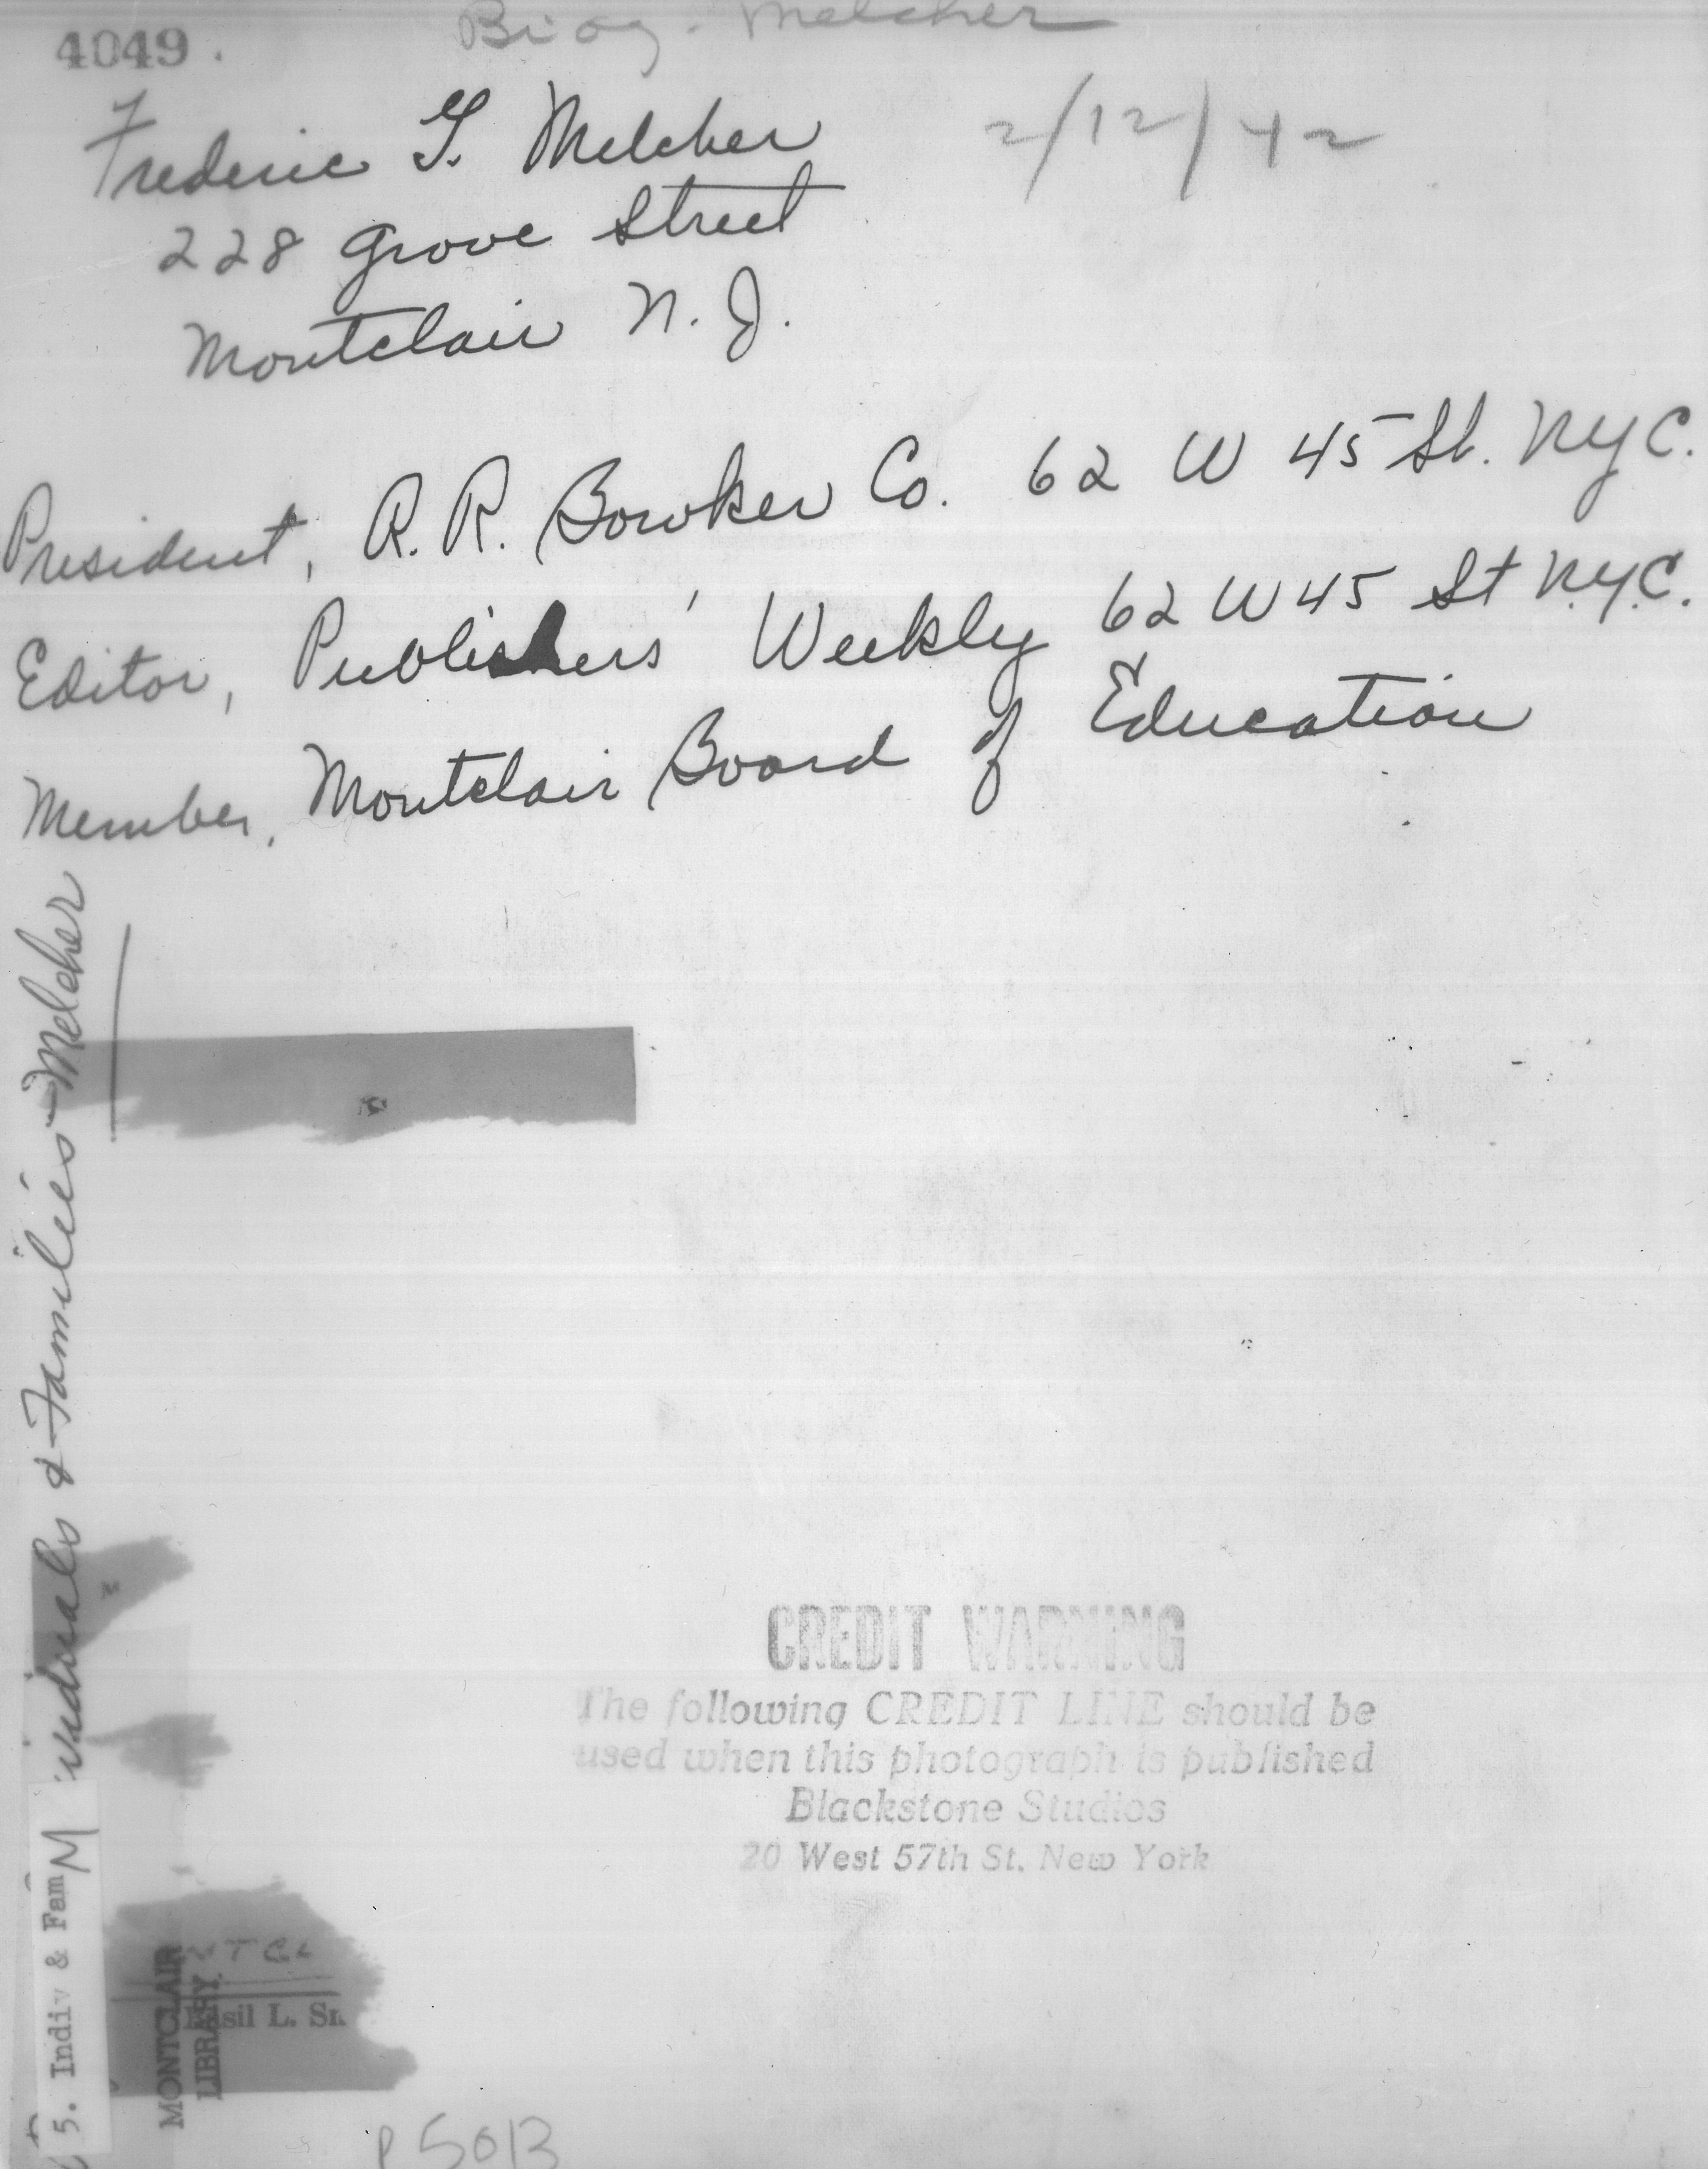 4049.
Biog. Melcher
2/12/42
Frederic G. Melcher
228 Grove Street
Montclair N. J.
President, R. R. Bowker Co. 62 W 45 St. NYC.
Editor, Publishers' Weekly 62 W 45 St N.Y.C.
Member, Montclair Board of Education
ividuals & Families-Melcher
5. Indiv & Fam M
MONTCLAIR
LIBRARY.
NTCL
Basil L. Sm
CREDIT WARNING
The following CREDIT LINE should be
used when this photograph is published
Blackstone Studios
20 West 57th St. New York
P 5013